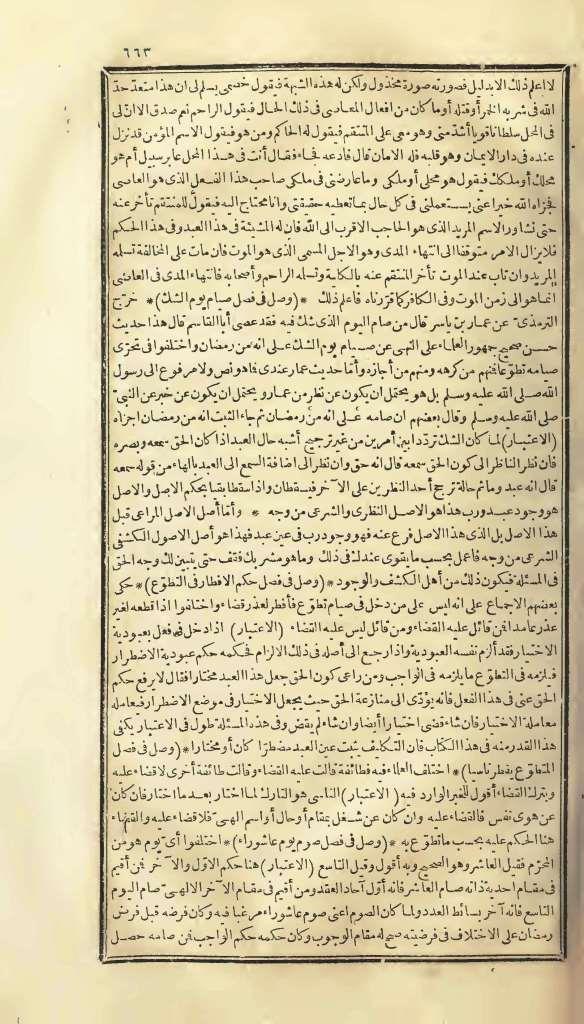 ٦٦٣
لا اعلم ذلك الا بدليل فصورته صورة مخذول ولكن له هذه الشبهة فيقول خصمى يسلم لى ان هذا متعد حد
الله فى شربه الخمر أو قتله أو ما كان من افعال المعاصى فى ذلك الحال فيقول الراحم نعم صدق الا ان لى
فى المحل سلطانا قويا أشد منى وهو معى على المنتقم فيقول له الحاكم ومن هو فيقول الاسم المؤمن قد نزل
عنده فى دار الايمان وهو قلبه فله الامان قال فادعه فجاء فقال أنت فى هذا المحل عابر سبيل أم هو
محلك أو ملكك فيقول هو محلى أو ملكى وما عارضنى فى ملكى صاحب هذا الفعل الذى هو العاصى
فجزاه الله خيرا عنى يستعملنى فى كل حال بما تعطيه حقيقتى وانا محتاج اليه فيقول للمنتقم تأخر عنه
حتى نشاور الاسم المريد الذى هو الحاجب الاقرب الى الله فان له المشيئة فى هذا العبد وفى هذا الحكم
فلا يزال الامر متوقفا الى انتهاء المدى وهو الاجل المسمى الذى هو الموت فان مات على المخالفة تسلمه
المريد وان تاب عند الموت تأخر المنتقم عنه بالكلية وتسلمه الراحم وأصحابه فانتهاء المدى فى العاصى
انما هو الى زمن الموت وفى الكافر كما قررناه فاعلم ذلك * (وصل فى فصل صيام يوم الشك)* خرّج
الترمذى عن عمار بن ياسر قال من صام اليوم الذى شك فيه فقد عصى أبا القاسم قال هذا حديث
حسن صحيح جمهور العلماء على النهى عن صيام يوم الشك على انه من رمضان واختلفوا فى تحرّى
صيامه تطوّعا فمنهم من كرهه ومنهم من أجازه وأما حديث عمار عندى فما هو نص ولا مرفوع الى رسول
الله صلى الله عليه وسلم بل هو يحتمل ان يكون عن نظر من عمار ويحتمل ان يكون عن خبر عن النبى
صلى الله عليه وسلم وقال بعضهم ان صامه على انه من رمضان ثم جاء الثبت انه من رمضان اجزاه
(الاعتبار) لما كان الشك تردّدا بين أمرين من غير ترجيح أشبه حال العبد اذا كان الحق سمعه وبصره
فان نظر الناظر الى كون الحق سمعه قال انه حق وان نظر الى اضافة السمع الى العبد بالهاء من قوله سمعه
قال انه عبد وما ثم حالة ترجح أحد النظرين على الآخر فيسقطان واذا سقطا بقيا بحكم الاصل والاصل
هو وجود عبد ورب هذا هو الاصل النظرى والشرعى من وجه * وأما أصل الاصل المراعى قبل
هذا الاصل بل الذى هذا الاصل فرع عنه فهو وجود رب فى عين عبد فهذا هو أصل الاصول الكشفى
الشرعى من وجه فاعمل بحسب ما يقوى عندك فى ذلك وما هو مشربك فقف حتى يتبين لك وجه الحق
فى المسئلة فيكون ذلك من أهل الكشف والوجود * (وصل فى فصل حكم الافطار فى التطوّع)* حكى
بعضهم الاجماع على انه ليس على من دخل فى صيام تطوّع فأفطر لعذر قضاء واختلفوا اذا قطعه لغير
عذر عامدا فمن قائل عليه القضاء ومن قائل ليس عليه القضاء (الاعتبار) اذا دخل فى فعل بعبودية
الاختيار فقد ألزم نفسه العبودية واذا رجع الى أصله فى ذلك الالزام فحكمه حكم عبودية الاضطرار
فيلزمه فى التطوّع ما يلزمه فى الواجب ومن راعى كون الحق جعل هذا العبد مختارا فقال لا يرفع حكم
الحق عنى فى هذا الفعل فانه يؤدّى الى منازعة الحق حيث يجعل الاختيار فى موضع الاضطرار فيعامله
معاملة الاختيار فان شاء قضى اختيارا أيضا وان شاء لم يقض وفى هذه المسئلة طول فى الاعتبار يكفى
هذا القدر منه فى هذا الكتاب فان التكليف يثبت عين العبد مضطرّا كان أو مختارا * (وصل فى فصل
المتطوّع يفطر ناسيا)* اختلف العلماء فيه فطائفة قالت عليه القضاء وقالت طائفة أخرى لا قضاء عليه
وبترك القضاء أقول للخبر الوارد فيه (الاعتبار) الناسى هو التارك لما اختار بعد ما اختار فان كان
عن هوى نفس فالقضاء عليه وان كان عن شغل بمقام أو حال أو اسم الهى فلا قضاء عليه والقضاء
هنا الحكم عليه بحسب ما تطوّع به * (وصل فى فصل صوم يوم عاشوراء)* اختلفوا أى يوم هو من
المحرّم فقيل العاشر وهو الصحيح وبه أقول وقيل التاسع (الاعتبار) هنا حكم الاوّل والآخر فمن أقيم
فى مقام احدية ذاته صام العاشر فانه أوّل آحاد العقد ومن أقيم فى مقام الآخر الالهى صام اليوم
التاسع فانه آخر بسائط العدد ولما كان الصوم اعنى صوم عاشوراء مرغبا فيه وكان فرضه قبل فرض
رمضان على الاختلاف فى فرضيته صح له مقام الوجوب وكان حكمه حكم الواجب فمن صامه حصل